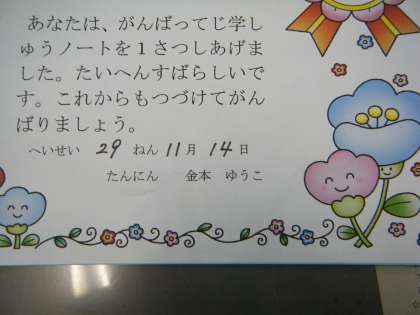 あなたは、がんばってじ学し
ゅうノートを１さつしあげま
した。たいへんすばらしいで
す。これからもつづけてがん
ばりましょう。
へいせい 29 ねん 11 月 14 日
たんにん 金本 ゆうこ